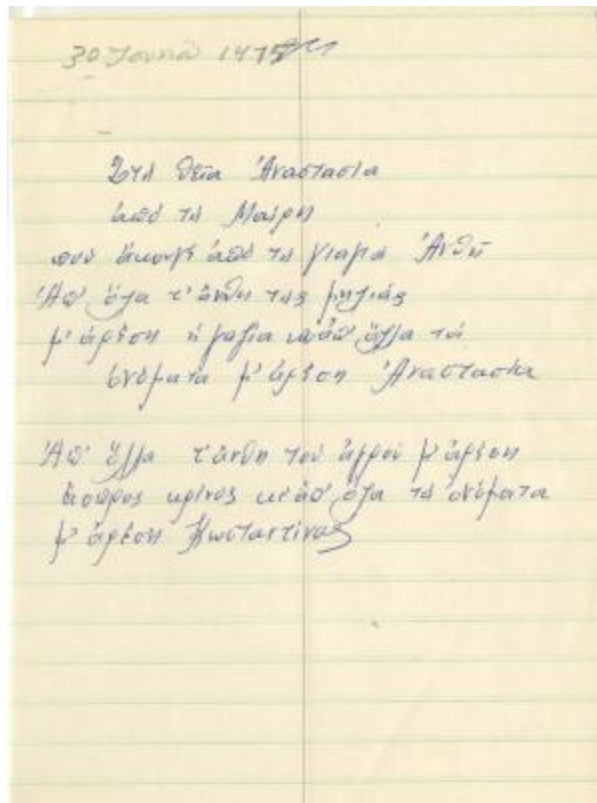 30 Ιουνίου 1975
Στη θεία Ἀναστασία
ἀπό τη Μαίρη
πού ἄκουγε ἀπό τη γιαγιά Ἀνθῆ
Ἀπ' ὅλα τ' ἄνθη της μηλιάς
μ' ἀρέση ἡ γαζία κι ἀπ' ὅλα τά
ὀνόματα μ' ἀρέση Ἀναστασία
Ἀπ' ὅλα τ' ἄνθη τοῦ ἀγροῦ μ' ἀρέση
ἄσπρος κρίνος κι ἀπ' ὅλα τα ὀνόματα
μ' ἀρέση Κωσταντίνος